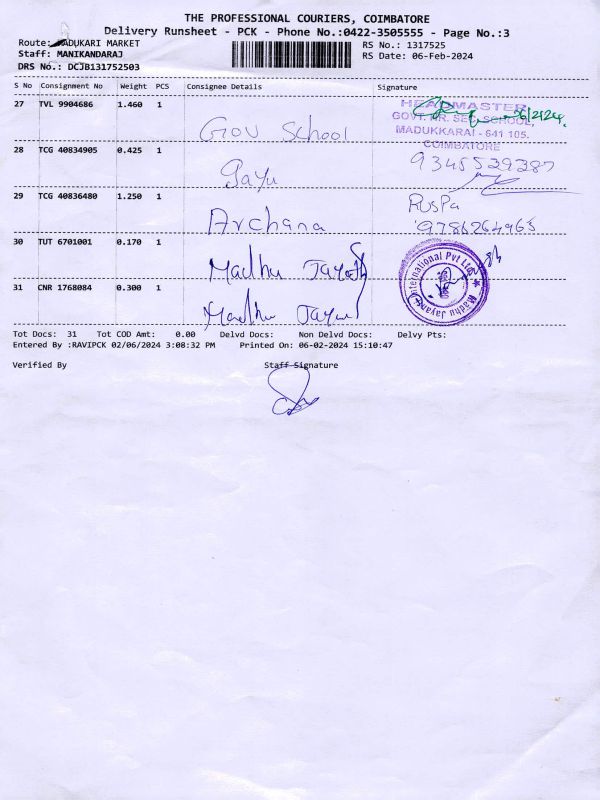 THE PROFESSIONAL COURIERS, COIMBATORE
Delivery Runsheet - PCK - Phone No.:0422-3505555 - Page No.:3
Route: ADUKARI MARKET
RS No.: 1317525
Staff: MANIKANDARAJ
RS Date: 06-Feb-2024
DRS No.: DCJB131752503
S No Consignment No Weight PCS Consignee Details Signature
27 TVL 9904686 1.460 1
HEADMASTER
GOVT. HR. SEC. SCHOOL,
MADUKKARAI - 641 105.
COIMBATORE
Gov School
28 TCG 40834905 0.425 1
9345529287
Gayu
29 TCG 40836480 1.250 1
RusPa
9786264965
Archana
30 TUT 6701001 0.170 1
Madhu Jayanti International Pvt Ltd
Madhu
31 CNR 1768084 0.300 1
Madhu
Tot Docs: 31 Tot COD Amt: 0.00 Delvd Docs: Non Delvd Docs: Delvy Pts:
Entered By :RAVIPCK 02/06/2024 3:08:32 PM Printed On: 06-02-2024 15:10:47
Verified By Staff Signature